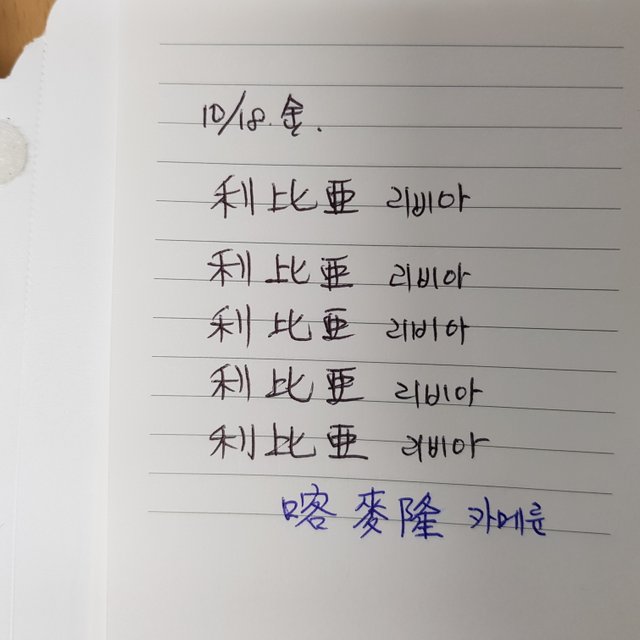 10/18. 金.
利比亜 리비아
利比亜 리비아
利比亜 리비아
利比亜 리비아
利比亜 리비아
喀麥隆 카메룬